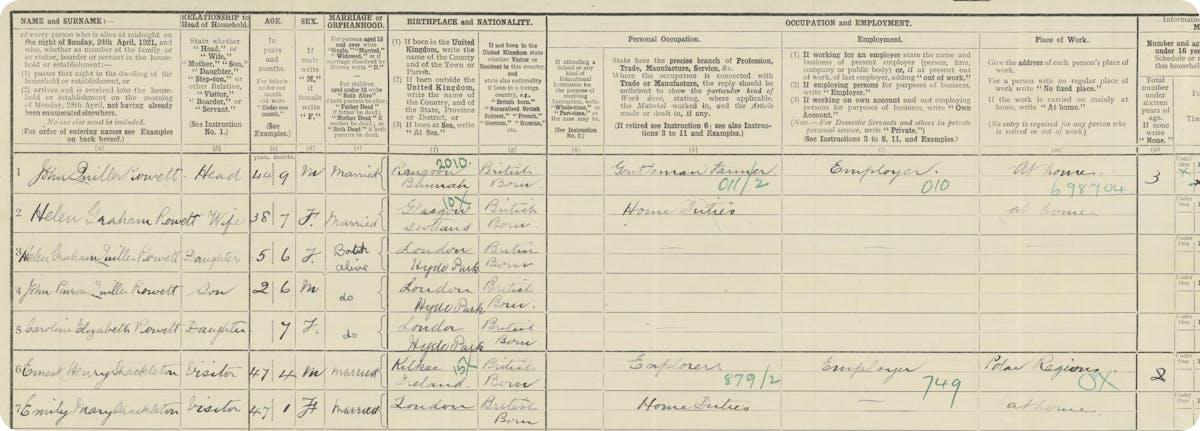 NAME and SURNAME:—
of every person who is alive at midnight on
the night of Sunday, 24th April, 1921, and
who, whether as member of the family or
as visitor, boarder or servant in the house-
hold or establishment:—
(1) passes that night in the dwelling of the
household or establishment, or
(2) arrives and is received into the house-
hold or establishment on the morning
of Monday, 25th April, not having already
been enumerated elsewhere.
No one else must be included.
(For order of entering names see Examples
on back hereof.)
(a)
RELATIONSHIP to
Head of Household.
State whether
"Head," or
"Wife,"
"Mother," "Son,"
"Daughter,"
"Step-son," or
other Relative,
"Visitor,"
"Boarder," or
"Servant."
(See Instruction
No. 1.)
(b)
AGE.
In
years
and
months.
For infants
under one
month
(See
Examples.)
(c)
SEX.
If
male
write
"M,"
if
female
write
"F."
(d)
MARRIAGE or
ORPHANHOOD.
For persons aged 15
and over write
"Single," "Married,"
"Widowed," or if
marriage dissolved by
divorce write "D."
For persons
aged under 15 write
"Both Alive"
"Father Dead"
"Mother Dead"
"Both Dead" if both
parents be dead.
(e)
BIRTHPLACE and NATIONALITY.
(1) If born in the United
Kingdom, write the
name of the County
and of the Town or
Parish.
(2) If born outside the
United Kingdom,
write the name of
the Country, and of
the State, Province
or District.
(3) If born at Sea, write
"At Sea."
(f)
If not born in the
United Kingdom state
whether Visitor or
Resident in this country,
and
state also nationality
"British born,"
"Naturalised British
Subject," "French,"
"German," "Russian,"
etc.
(g)
(See Instruction
No. 2.)
(h)
OCCUPATION and EMPLOYMENT.
Personal Occupation.
State here the precise branch of Profession,
Trade, Manufacture, Service, &c.
Where the occupation is connected with
Trade or Manufacture, the reply should be
sufficient to show the particular kind of
Work done, stating, where applicable,
the Material worked in, and the Article
made or dealt in, if any.
(If retired see Instruction 6; see also Instruc-
tions 3 to 11 and Examples.)
(k)
Employment.
(1) If working for an employer state the name and
business of present employer (person, firm,
company or public body) or, if at present out
of work, of last employer, adding "out of work."
(2) If employing persons for purposes of business,
write "Employer."
(3) If working on own account and not employing
persons for purposes of business, write "Own
Account."
(Note.—For Domestic Servants and others in private
personal service, write "Private.")
(See Instructions 3, 8, 9, 11, and Examples.)
(l)
Place of Work.
Give the address of each person's place of
work.
For a person with no regular place of
work write "No fixed place."
If the work is carried on mainly at
home, write "At home."
(No entry is required for any person who
is retired or out of work.)
(m)
Total
number
under
sixteen
years
of age.
If none
write
"None."
years. months.
1 John Quiller Rowett Head 44 9 M Married Rangoon 2010. British Gentleman Farmer Employer. At home. 3
Burmah Born 011/2 010 698704
2 Helen Graham Rowett Wife 38 7 F. Married Glasgow 10X British Home Duties at home
Scotland Born.
3 Helen Graham Quiller Rowett Daughter 5 6 F. Both London British — — —
alive Hyde Park Born
4 John Quiller Rowett Son 2 6 M do London British
Hyde Park Born.
5 Caroline Elizabeth Rowett Daughter 7 F. do London British
Hyde Park Born
6 Ernest Henry Shackleton Visitor 47 4 M Married Kilkee 15X British Explorer Employer Polar Regions 2
Ireland. Born 879/2 749 0X
7 Emily Mary Shackleton Visitor 47 1 F Married London British Home Duties — at home.
Born